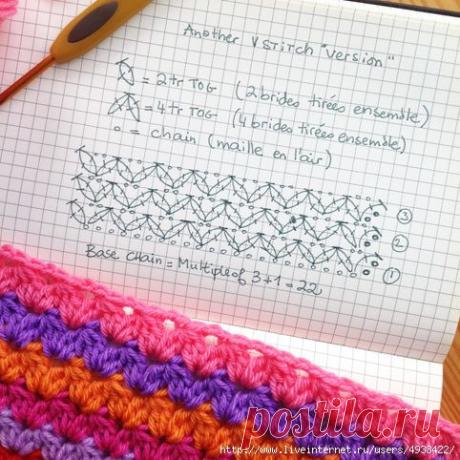 Another V STITCH "Version"
= 2 tr TOG (2 brides tirées ensemble)
= 4 tr TOG (4 brides tirées ensemble)
o = chain (maille en l'air)
3
2
1
Base chain = Multiple of 3 + 1 = 22
postila.ru
http://www.liveinternet.ru/users/4933422/